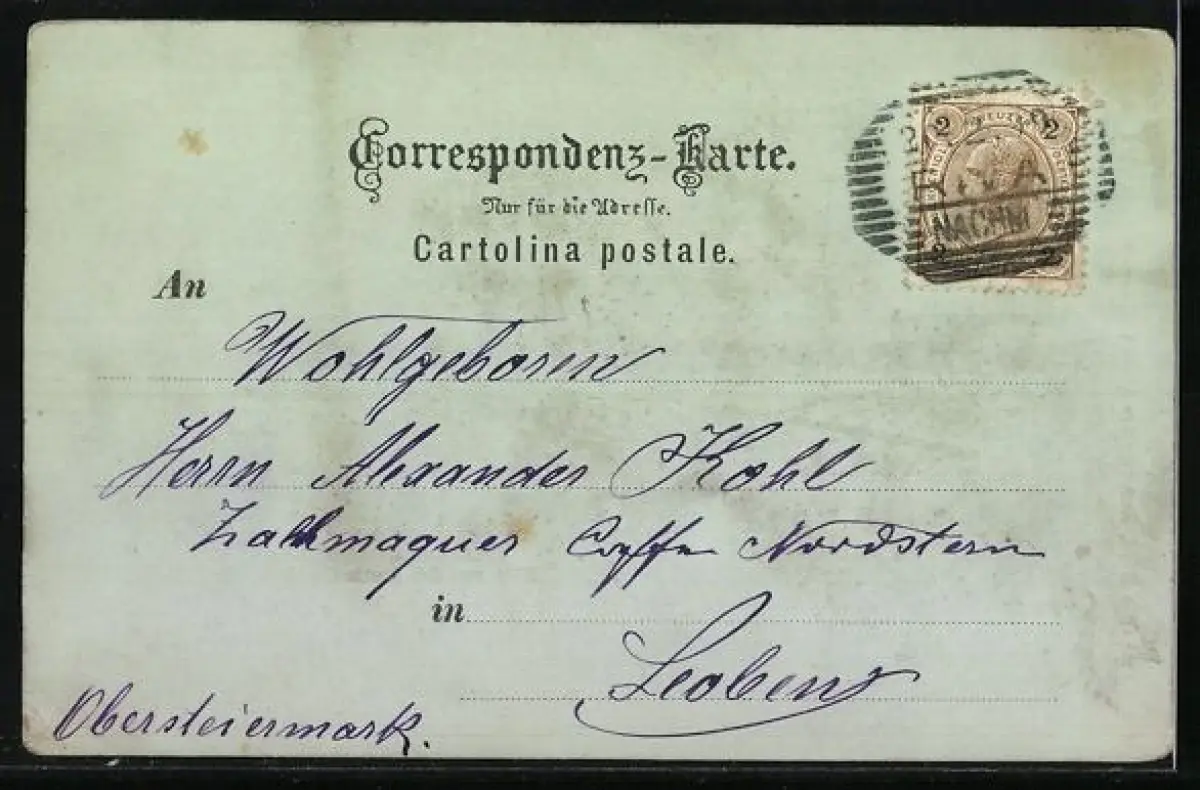 Correspondenz-Karte.
Nur für die Adresse.
Cartolina postale.
An
Wohlgeboren
Herrn Alexander Kohl
Zallmaquer Caffe Nordstern
in
Leoben
Obersteiermark.
2 2
NACHM
2 2